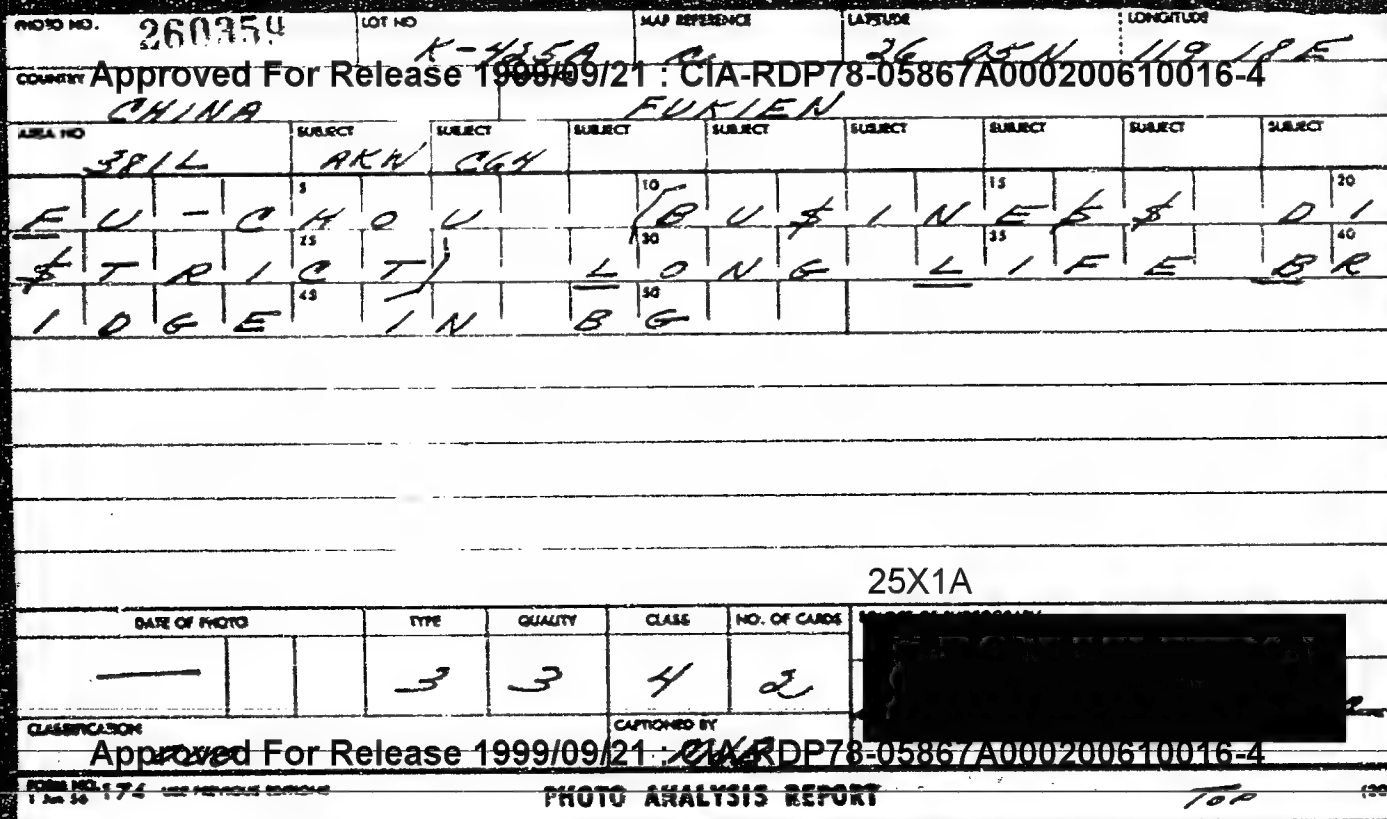 PHOTO NO. LOT NO MAP REFERENCE LATITUDE LONGITUDE
260354 K-425A 26 05N 119 18 E
COUNTRY Approved For Release 1999/09/21 : CIA-RDP78-05867A000200610016-4
CHINA FUKIEN
AREA NO SUBJECT SUBJECT SUBJECT SUBJECT SUBJECT SUBJECT SUBJECT SUBJECT
381L AKW CGH
5 10 15 20
FU-CHOU (BU$INE$$ DI
25 30 35 40
$TRICT) LONG LIFE BR
45 50
IDGE IN BG
25X1A
DATE OF PHOTO TYPE QUALITY CLASS NO. OF CARDS
— 3 3 4 2
CLASSIFICATION CAPTIONED BY
Approved For Release 1999/09/21 : CIA-RDP78-05867A000200610016-4
FORM NO. 1 Jun 56 174 USE PREVIOUS EDITIONS PHOTO ANALYSIS REPORT TOP